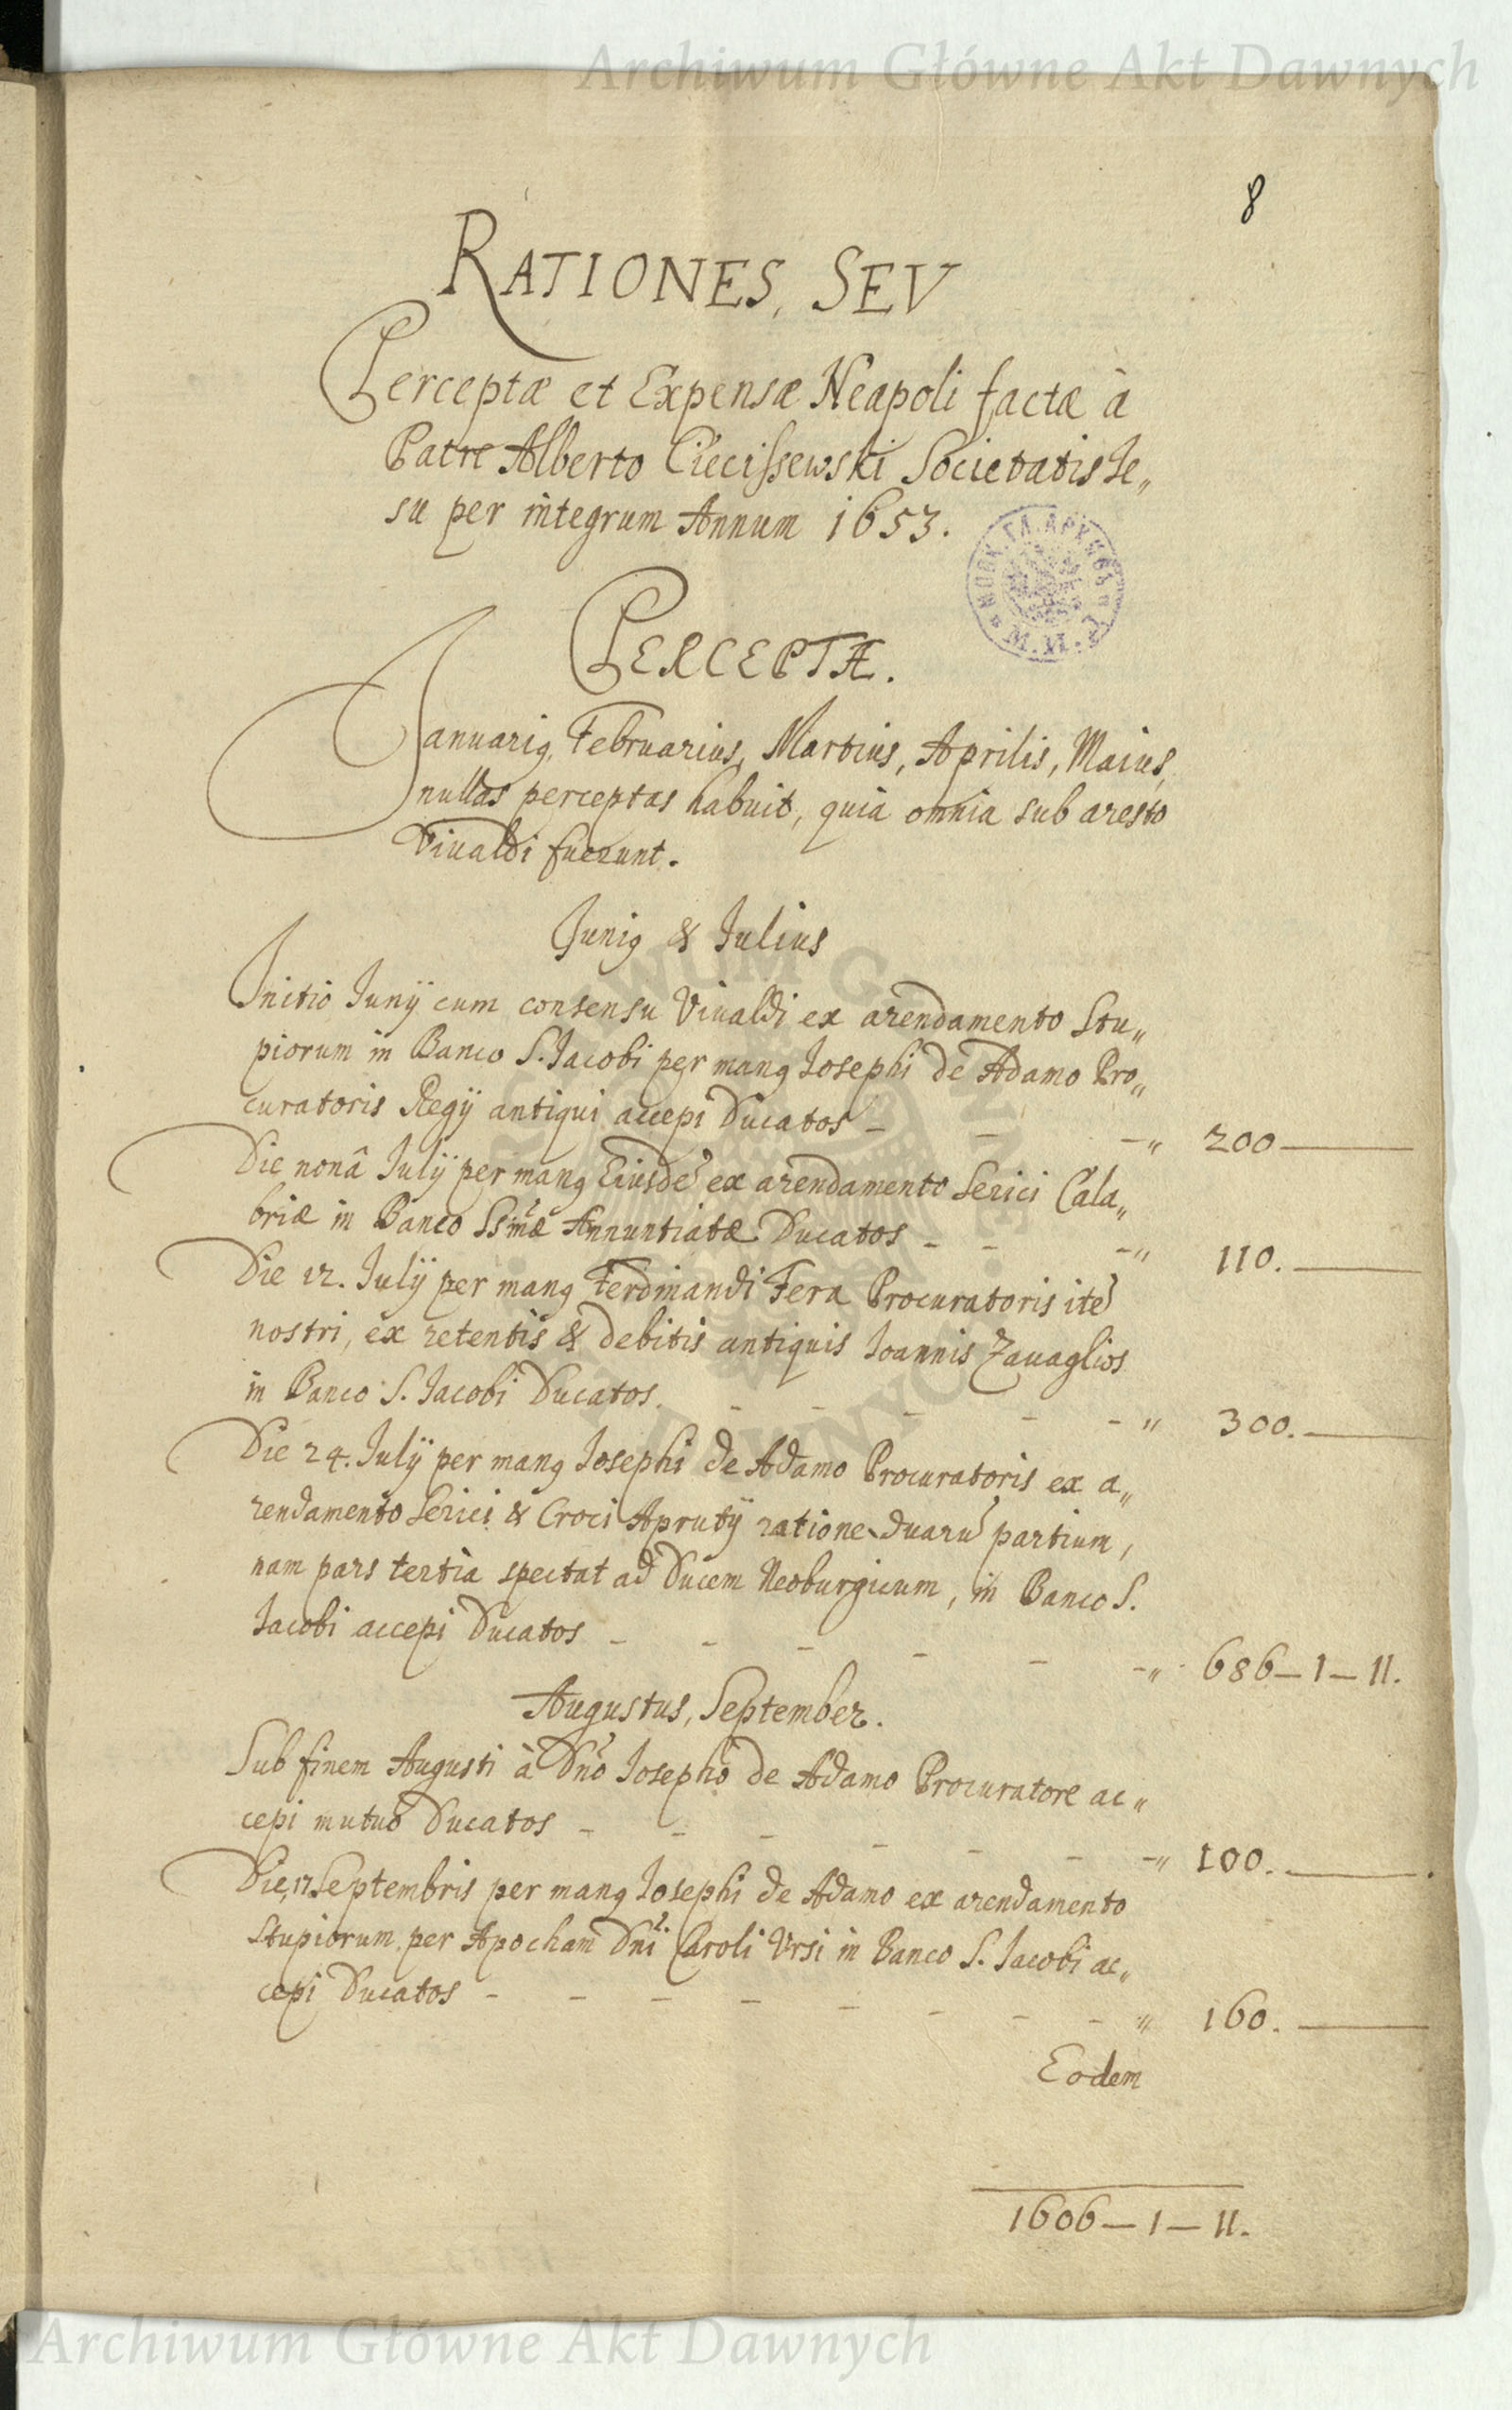 Archiwum Główne Akt Dawnych
8
RATIONES, SEV
Perceptæ et Expensæ Neapoli factæ à
Patre Alberto Ciecissewski Societatis Je„
su per integrum Annum 1653.
PERCEPTÆ.
Januarig, Februarius, Martius, Aprilis, Maius,
nullas perceptas habuit, quia omnia sub aresto
Vivaldi fuerunt.
Junig & Julius
Initio Junÿ cum consensu Vivaldi ex arendamento Stu„
piorum in Banco S. Jacobi per mang Josephi de Adamo Pro„
curatoris Regÿ antiqui accepi Ducatos – – –„ 200
Die nonâ Julÿ per mang Eiusdē ex arendamento Serici Cala„
briæ in Banco Ssmæ Annuntiatæ Ducatos – – –„ 110.
Die 12. Julÿ per mang Ferdinandi Fera Procuratoris itē
nostri, ex retentis & debitis antiquis Joannis Zavaglios
in Banco S. Jacobi Ducatos. – – – – –„ 300.
Die 24. Julÿ per mang Josephi de Adamo Procuratoris ex a„
rendamento Serici & Croci Aprutÿ ratione duarū partium,
nam pars tertia spectat ad Ducem Neoburgicum, in Banco S.
Jacobi accepi Ducatos – – – – – –„ 686–1–11.
Augustus, September.
Sub finem Augusti à Dnō Josepho de Adamo Procuratore ac„
cepi mutuo Ducatos – – – – – – –„ 100.
Die 17 Septembris per mang Josephi de Adamo ex arendamento
Stupiorum per Apocham Dnī Caroli Ursi in Banco S. Jacobi ac„
cepi Ducatos – – – – – – – – „ 160.
Eodem
1606–1–11.
Archiwum Główne Akt Dawnych